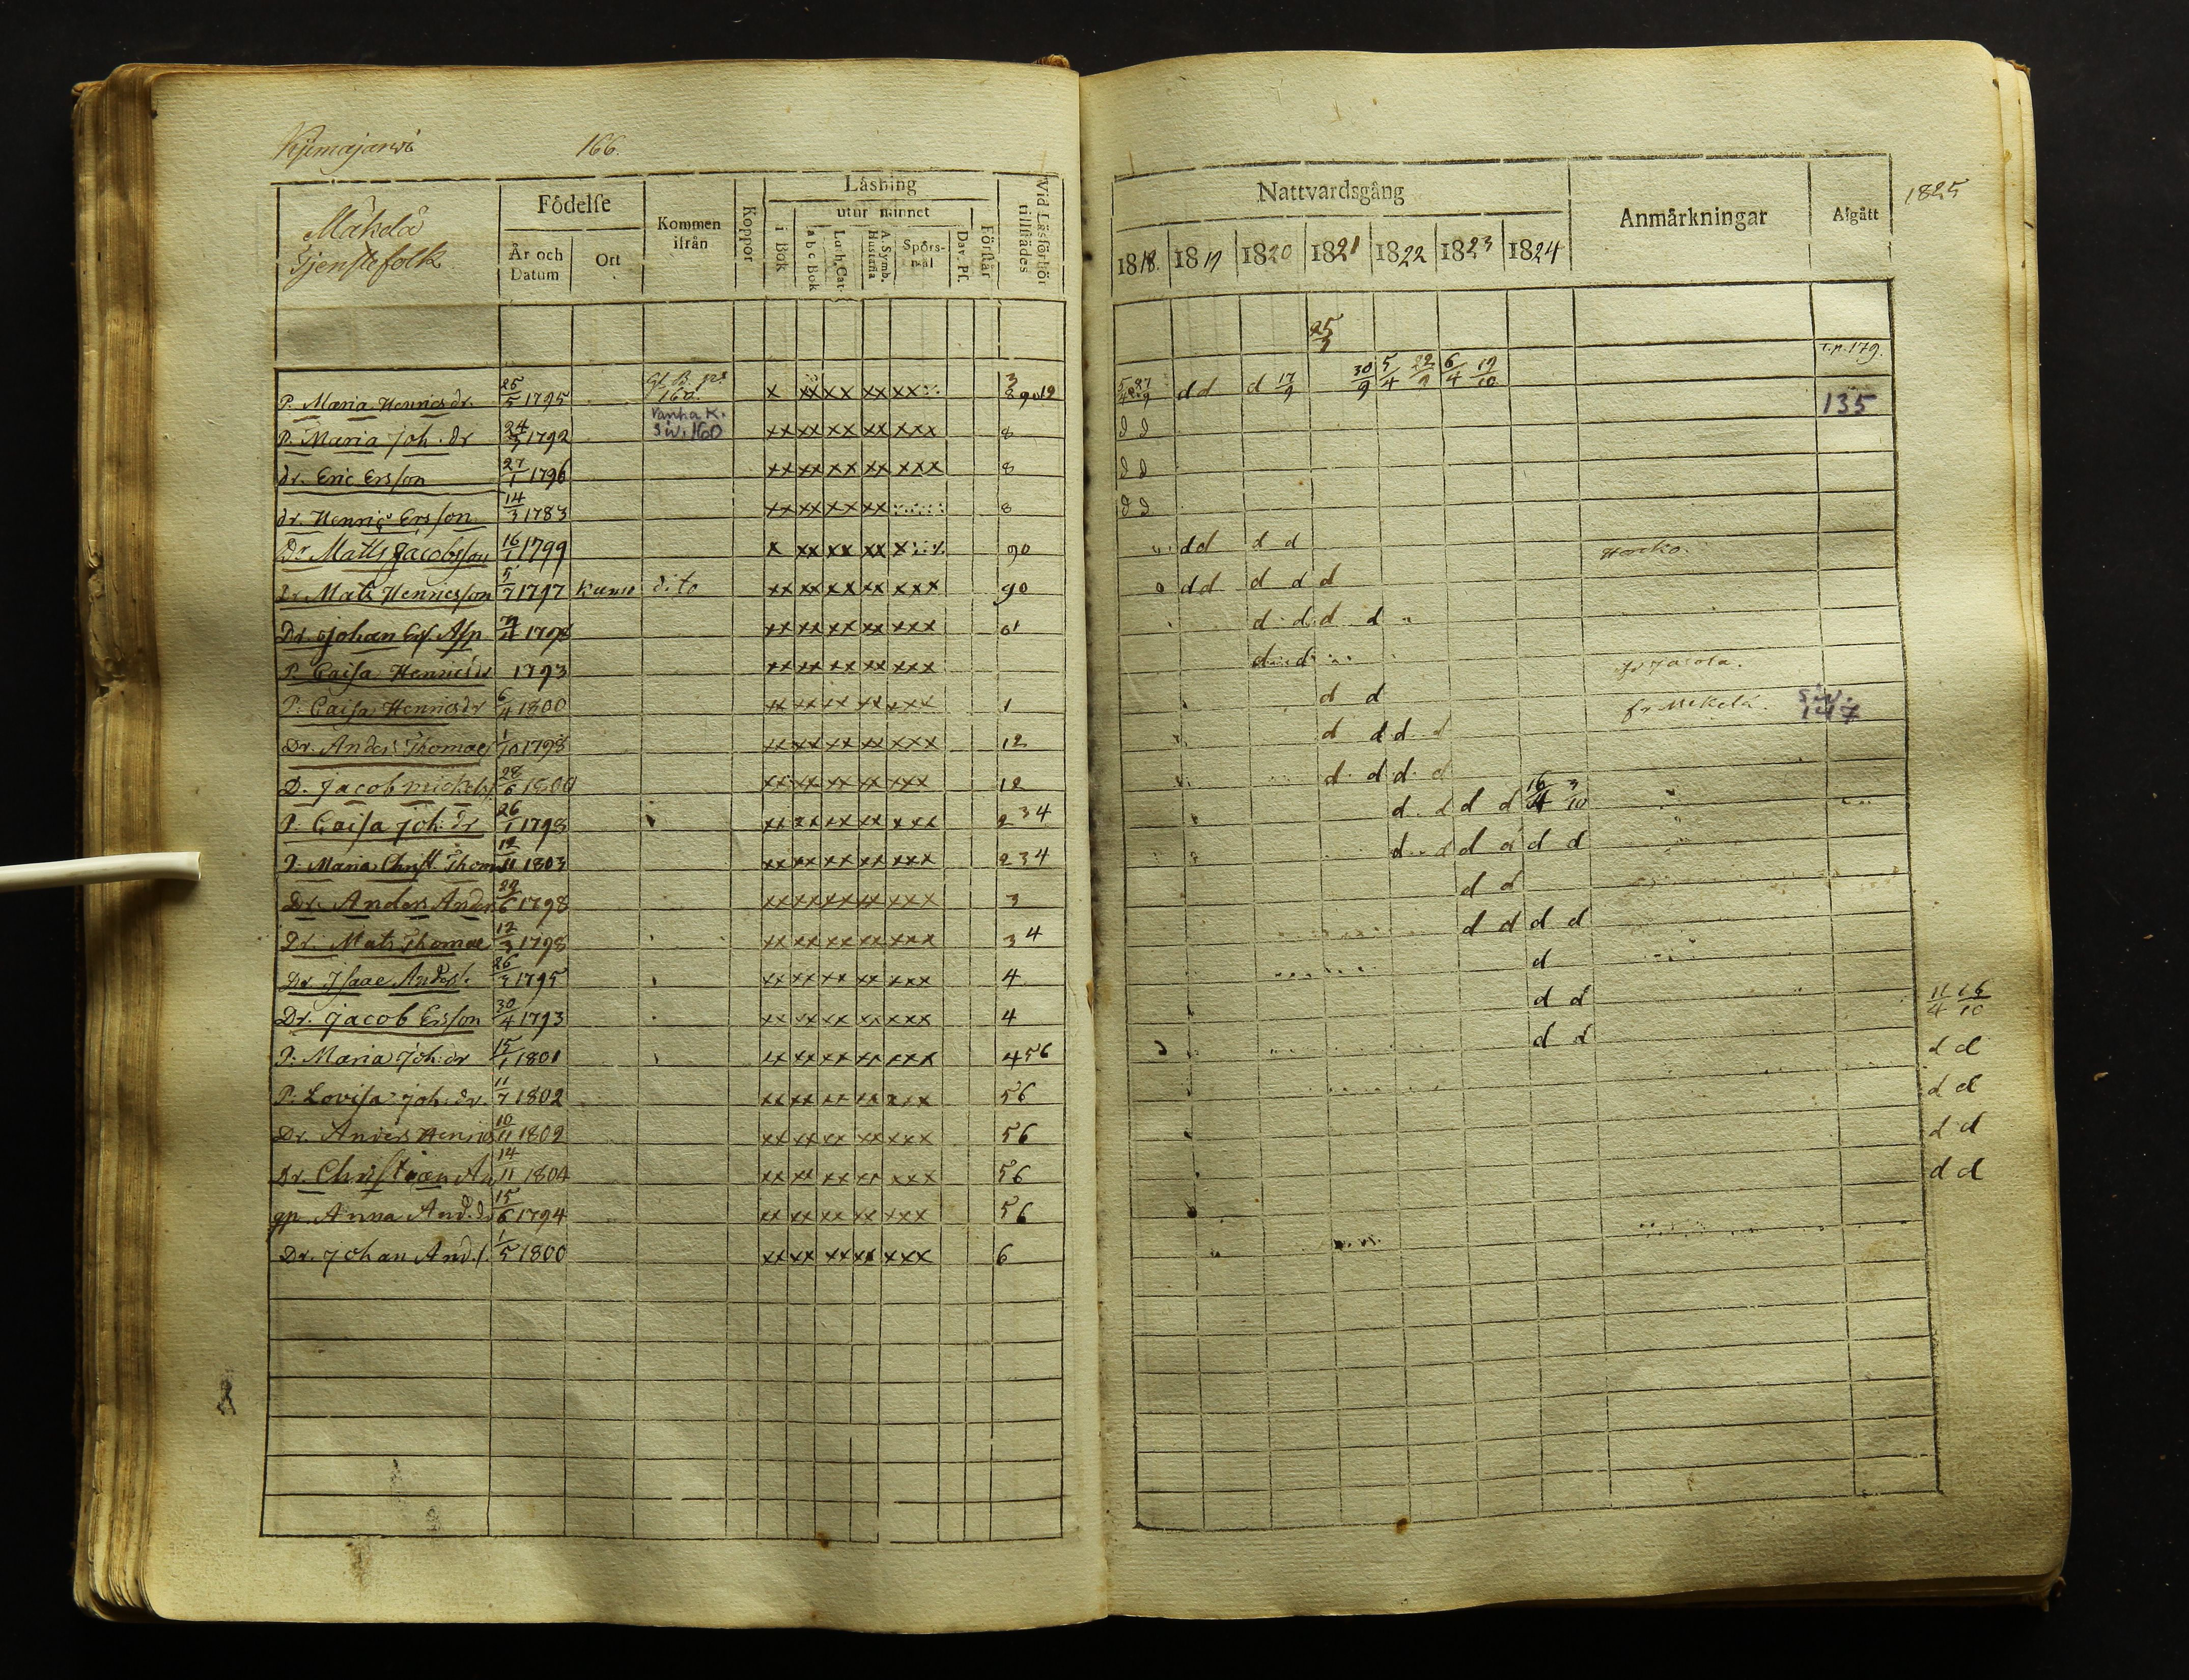 Kjimajarwi 166.
Mäkelä
Tjenstefolk
Födelse
År och Datum
Ort
Kommen ifrån
Koppor
Läsning
i Bok
utur minnet
a b c Bok
Luth. Cat.
A. Symb. Hustafla
Spörsmål
Dav. Ps.
Förstår
Vid Läsförhör tillstädes
P. Maria Henricsdr. 25/5 1795 Gl. B. p: 160. x xx xx xx xx 3 8 9 0 12
P. Maria Joh. dr 24/7 1792 Vanha K. siv. 160 xx xx xx xx xxx 8
dr. Eric Ersson 27/1 1796 xx xx xx xx xxx 8
dr. Henric Ersson 14/3 1783 xx xx xx xx 8
Dr Matts Jacobsson 16/1 1799 x xx xx xx x 90
Dr. Mats Henricsson 5/7 1797 Kumo dito xx xx xx xx xxx 90
Dr. Johan Asp xx xx xx xx xxx 01
P. Caisa Henricsdr 1793 xx xx xx xx xxx
P. Caisa Henricsdr 6/4 1800 xx xx xx xx xxx 1
Dr. Anders Thomae 1/10 1798 xx xx xx xx xxx 12
D. Jacob Mickels 28/6 1800 xx xx xx xx xxx 12
P. Caisa Joh. dr 26/1 1798 xx xx xx xx xxx 234
P. Maria Christ. Thom 12/11 1803 xx xx xx xx xxx 234
Dr. Anders Anders 29/6 1798 xx xx xx xx xxx 3
Dr. Mats Thomae 12/3 1798 xx xx xx xx xxx 34
Dr Isaac Anders. 26/3 1795 xx xx xx xx xxx 4
Dr. Jacob Ersson 30/4 1793 xx xx xx xx xxx 4
P. Maria Joh. dr 15/1 1801 xx xx xx xx xxx 456
P. Lovisa Joh. dr. 11/7 1802 xx xx xx xx xxx 56
Dr. Anders Henrics 10/11 1802 xx xx xx xx xxx 56
Dr. Christian An 14/11 1804 xx xx xx xx xxx 56
gp. Anna And. d 15/6 1794 xx xx xx xx xxx 56
Dr. Johan And. s. 1/5 1800 xx xx xx xx xxx 6
Nattvardsgång
Anmärkningar
Afgått
1825
1818. 1819 1820 1821 1822 1823 1824
25/3
5/4 27/9 d d d 17/9 30/9 5/4 22/9 6/4 19/10 n. 179.
d d 135
d d
d d
d d d d Harko.
d d d d d
d d d d
d d fr Jasola.
d d fr Mikelä. Siv. 147
d d d d
d d d d
d d d d 16/4 3/10
d d d d d d
d d
d d d d
d
d d 11/4 16/10
d d d d
d d
d d
d d